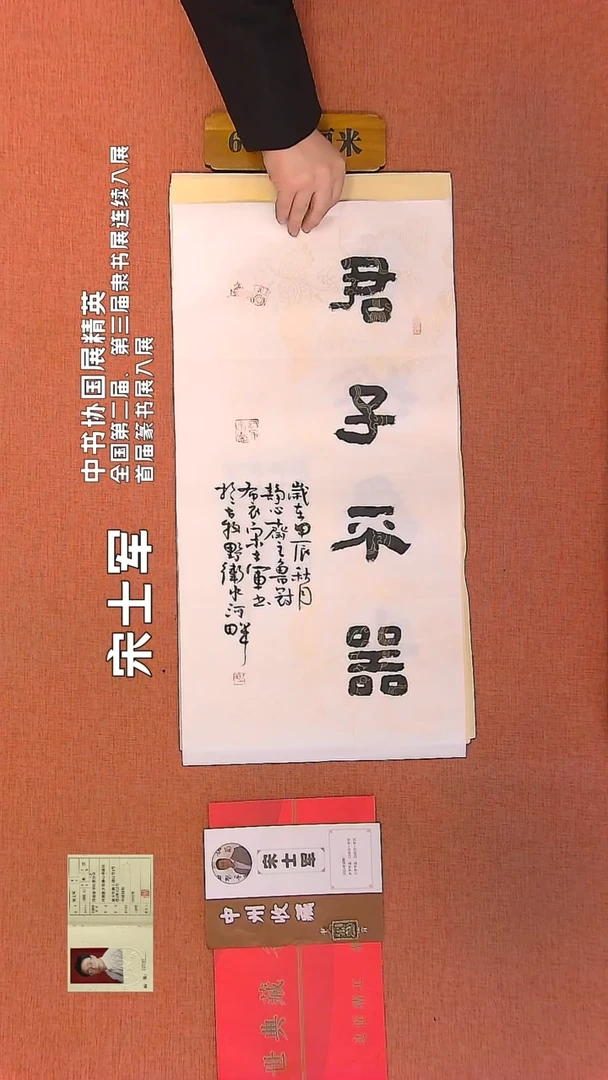 中书协国展精英
全国第二届、第三届隶书展连续入展
首届篆书展入展
宋士军
米
君子不器
歲在甲辰秋月
静心齋主魯對
布衣宋士軍書
於古牧野衛水河畔
宋士军
中州收藏
世典藏